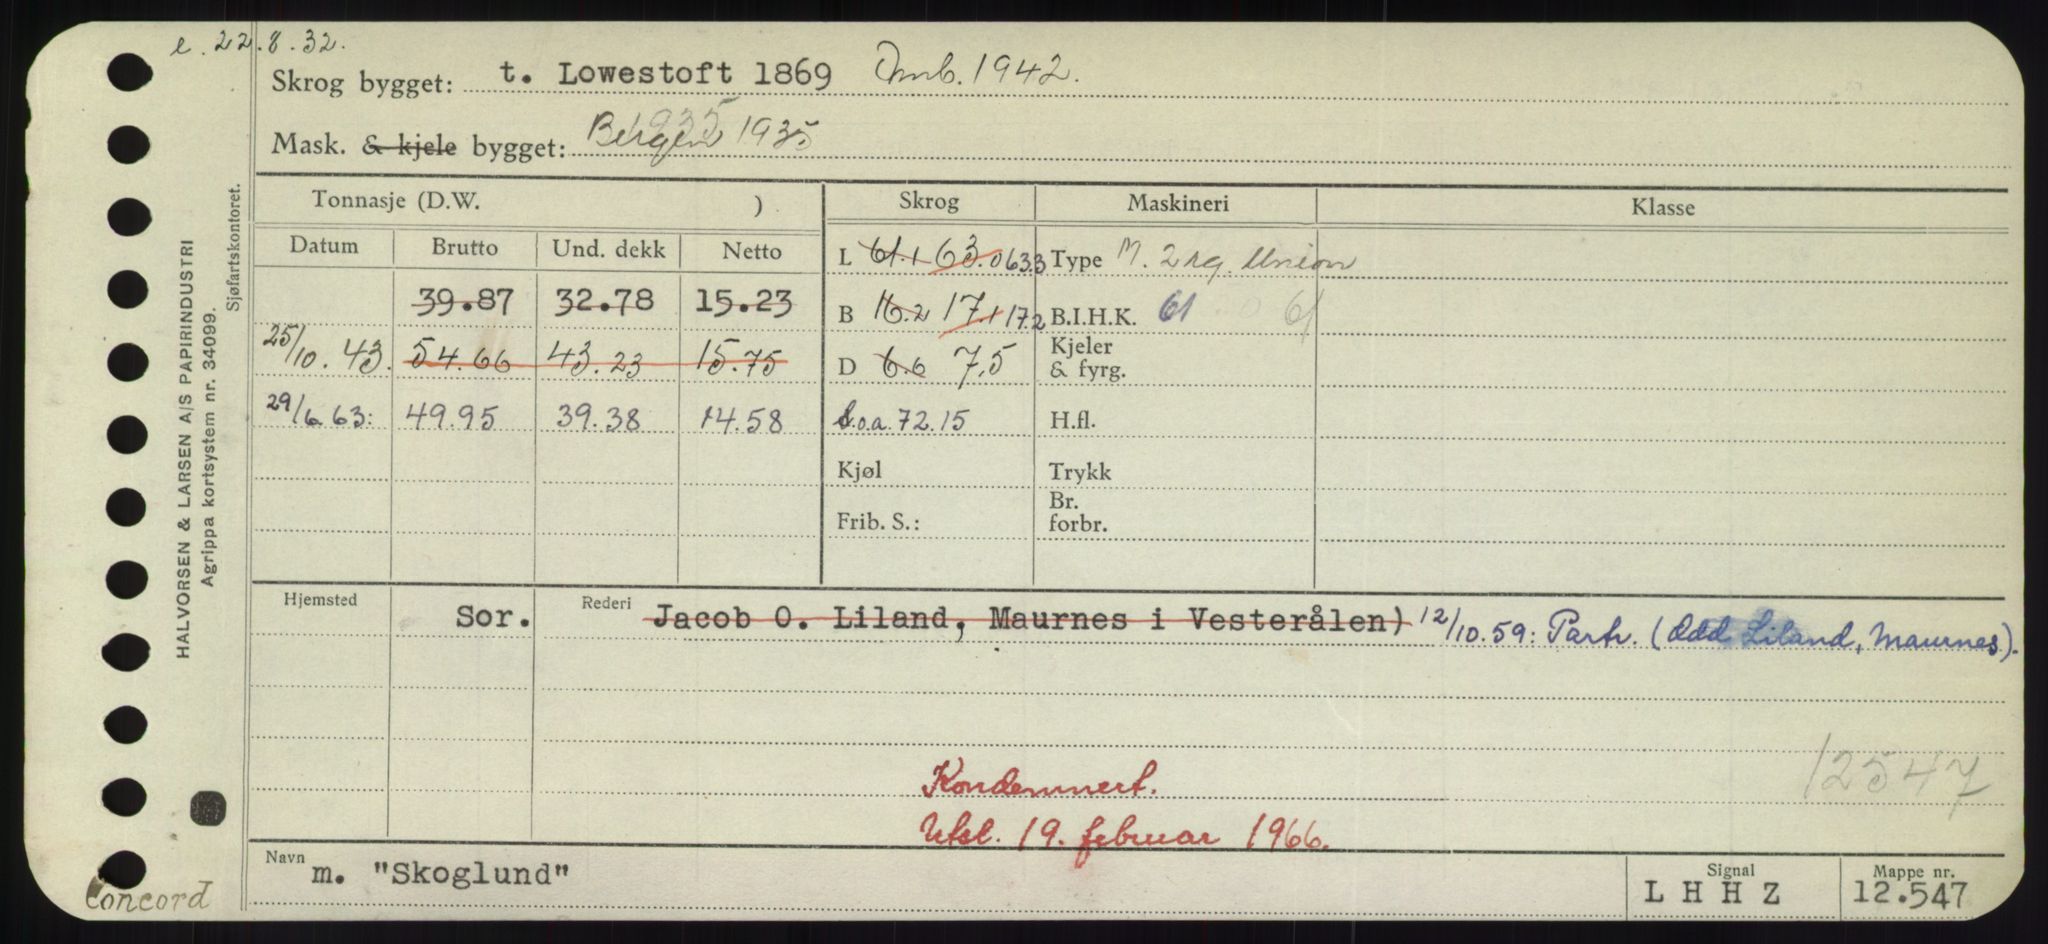 e. 22.8.32.
Skrog bygget: t. Lowestoft 1869 Omb. 1942.
Mask. & kjele bygget: Bergen 1935 1935
Tonnasje (D.W. ) Skrog Maskineri Klasse
Datum Brutto Und. dekk Netto L 61.1 63.0 63.3 Type M. 2 sg. Union
39.87 32.78 15.23 B 16.2 17.1 17.2 B.I.H.K. 61 61
25/10.43. 54.66 43.23 15.75 D 6.6 7,5 Kjeler & fyrg.
29/6.63: 49.95 39.38 14.58 L.o.a. 72.15 H.fl.
Kjøl Trykk
Frib. S.: Br. forbr.
Hjemsted Sor. Rederi Jacob O. Liland, Maurnes i Vesterålen) 12/10.59: Partr. (Odd Liland, Maurnes).
12547
Kondemnert.
Utsl. 19. februar 1966.
Navn m. "Skoglund" Signal L H H Z Mappe nr. 12.547
Concord
HALVORSEN & LARSEN A/S PAPIRINDUSTRI
Agrippa kortsystem nr. 34099.
Sjøfartskontoret.